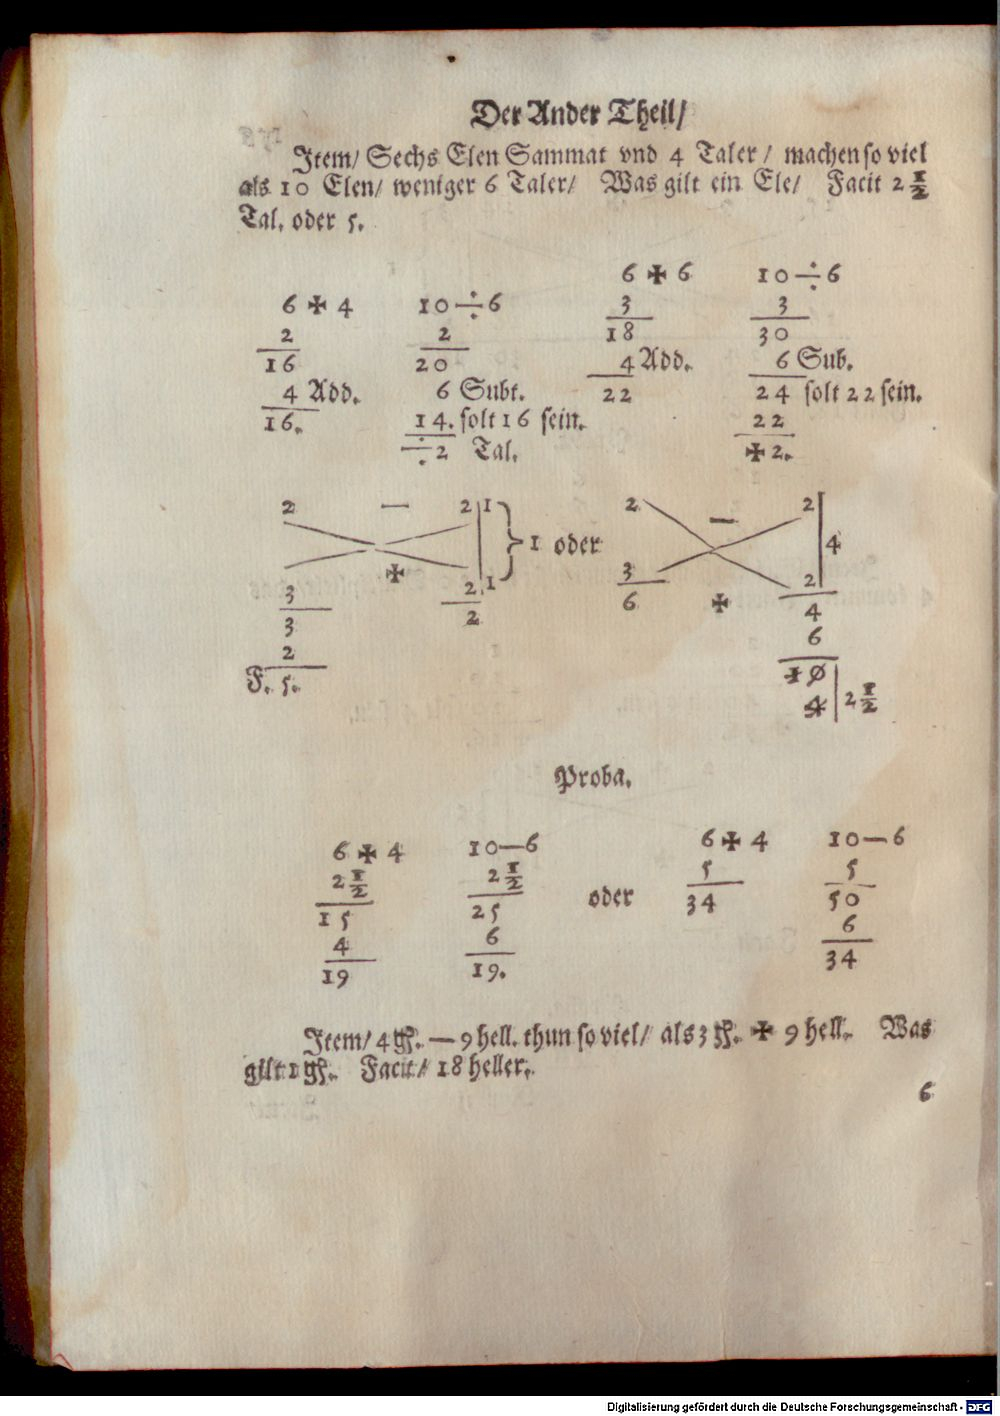 Der Ander Theil/
Item/ Sechs Elen Sammat vnd 4 Taler/ machen so viel
als 10 Elen/ weniger 6 Taler/ Was gilt ein Ele/ Facit 2 1/2
Tal. oder 5.
6 ✠ 4 10 ÷ 6
2 2
16 20
4 Add. 6 Subt.
16. 14. solt 16 sein.
÷ 2 Tal.
6 ✠ 6 10 ÷ 6
3 3
18 30
4 Add. 6 Sub.
22 24 solt 22 sein.
22
✠ 2.
2 — 2 1
} 1 oder
✠
3 2 1
3 2
2
F. 5.
2 — 2
4
3 2
6 ✠ 4
6
10
4 | 2 1/2
Proba.
6 ✠ 4 10 — 6
2 1/2 2 1/2
15 25
4 6
19 19.
oder
6 ✠ 4 10 — 6
5 5
34 50
6
34
Item/ 4 ꝭ. — 9 hell. thun so viel/ als 3 ꝭ. ✠ 9 hell. Was
gilt 1 ꝭ. Facit/ 18 heller.
6
Digitalisierung gefördert durch die Deutsche Forschungsgemeinschaft - DFG